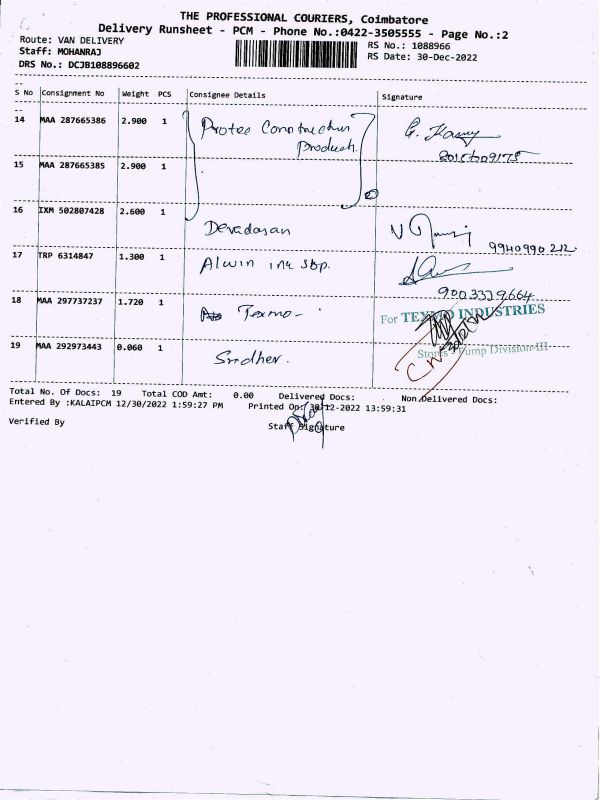 THE PROFESSIONAL COURIERS, Coimbatore
Delivery Runsheet - PCM - Phone No.:0422-3505555 - Page No.:2
Route: VAN DELIVERY
RS No.: 1088966
Staff: MOHANRAJ
RS Date: 30-Dec-2022
DRS No.: DCJB108896602
S No Consignment No Weight PCS Consignee Details Signature
14 MAA 287665386 2.900 1 Protec Construction
Product
15 MAA 287665385 2.900 1
16 IXM 502807428 2.600 1 Devadasan
9940990212
17 TRP 6314847 1.300 1 Alwin
9003329664
18 MAA 297737237 1.720 1 Texmo-
For TEXMO INDUSTRIES
Stores Pump Division-III
19 MAA 292973443 0.060 1 Sridher.
Total No. Of Docs: 19 Total COD Amt: 0.00 Delivered Docs: Non.Delivered Docs:
Entered By :KALAIPCM 12/30/2022 1:59:27 PM Printed On: 30-12-2022 13:59:31
Verified By Staff Signature